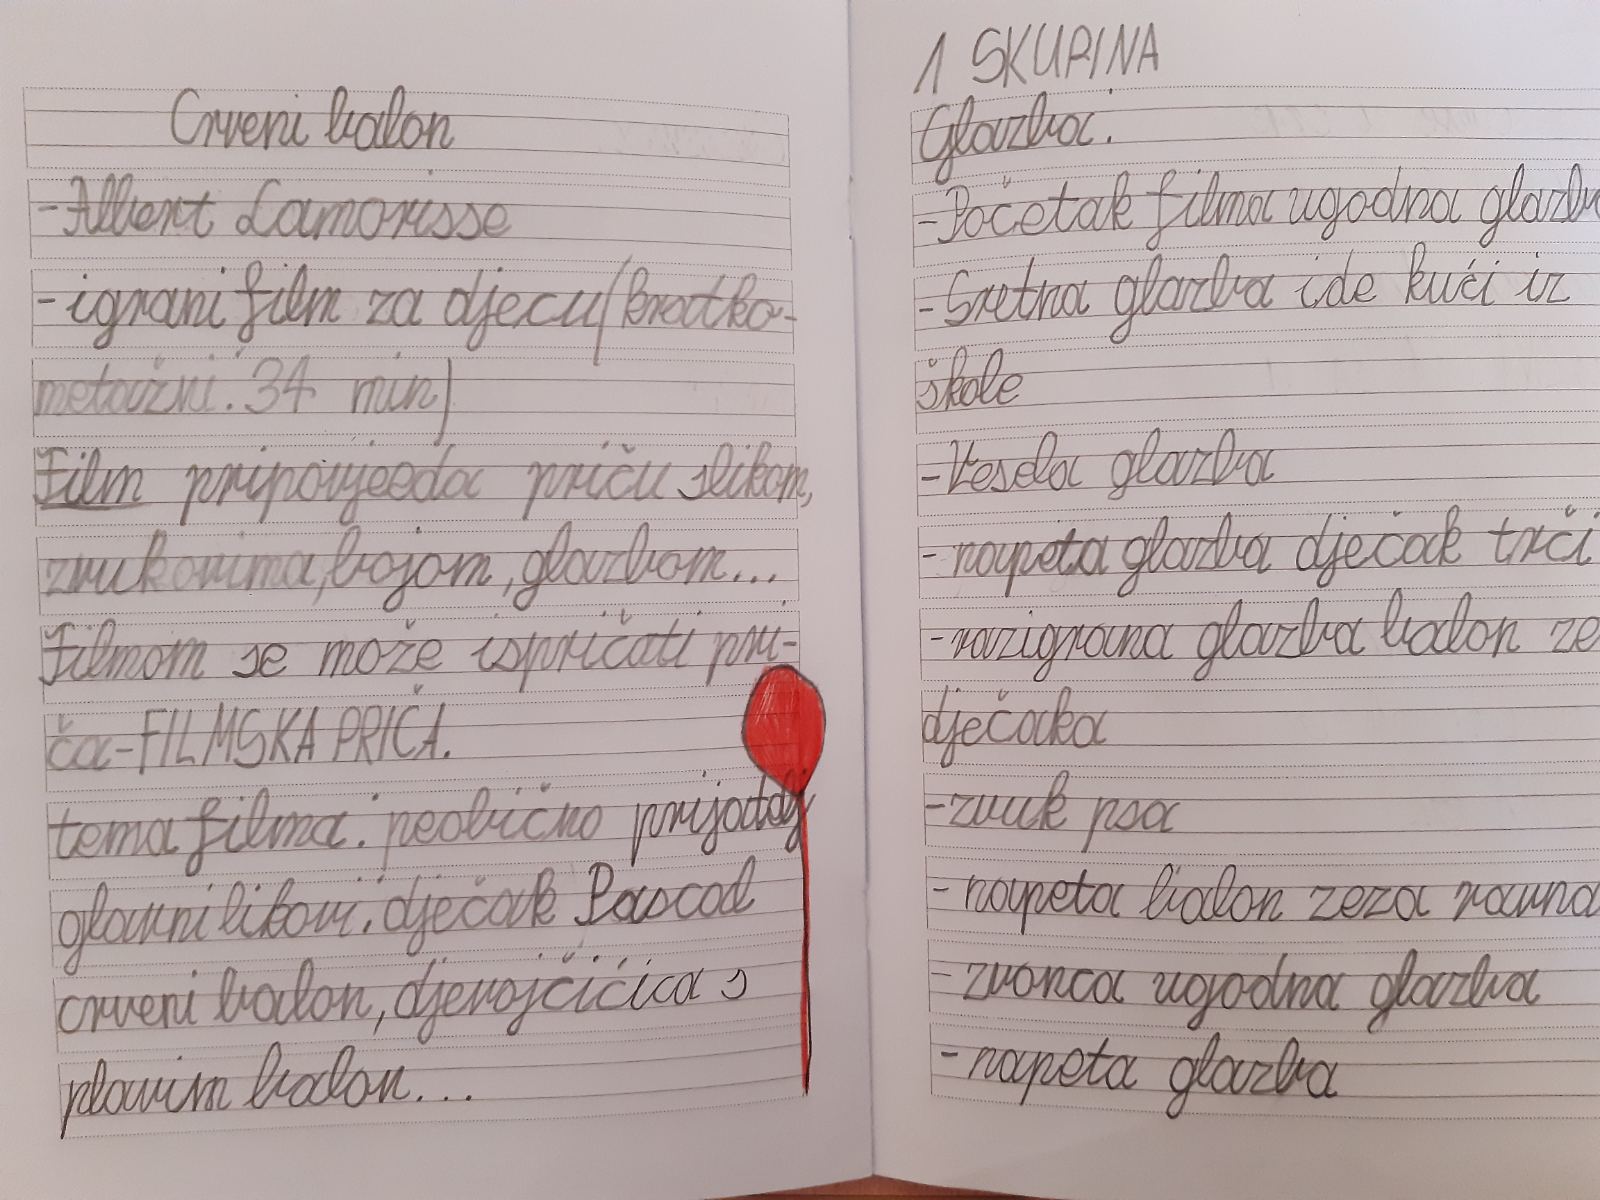 Crveni balon
-Albert Lamorisse
-igrani film za djecu (kratko-
metažni. 34 min)
Film pripovjeeda priču slikom,
zvukovima, bojom, glazbom...
Filmom se može ispričati pri-
ča-FILMSKA PRIČA.
tema filma: neobično prijatelj
glavni likovi: dječak Pascal
crveni balon, djevojčićica s
plavim balon...
1 SKUPINA
Glazba:
-Početak filma ugodna glazb
-Sretna glazba ide kući iz
škole
-Vesela glazba
-napeta glazba dječak trči
-razigrana glazba balon ze
dječaka
-zvuk psa
-napeta balon zeza ravna
-zvonca ugodna glazba
-napeta glazba